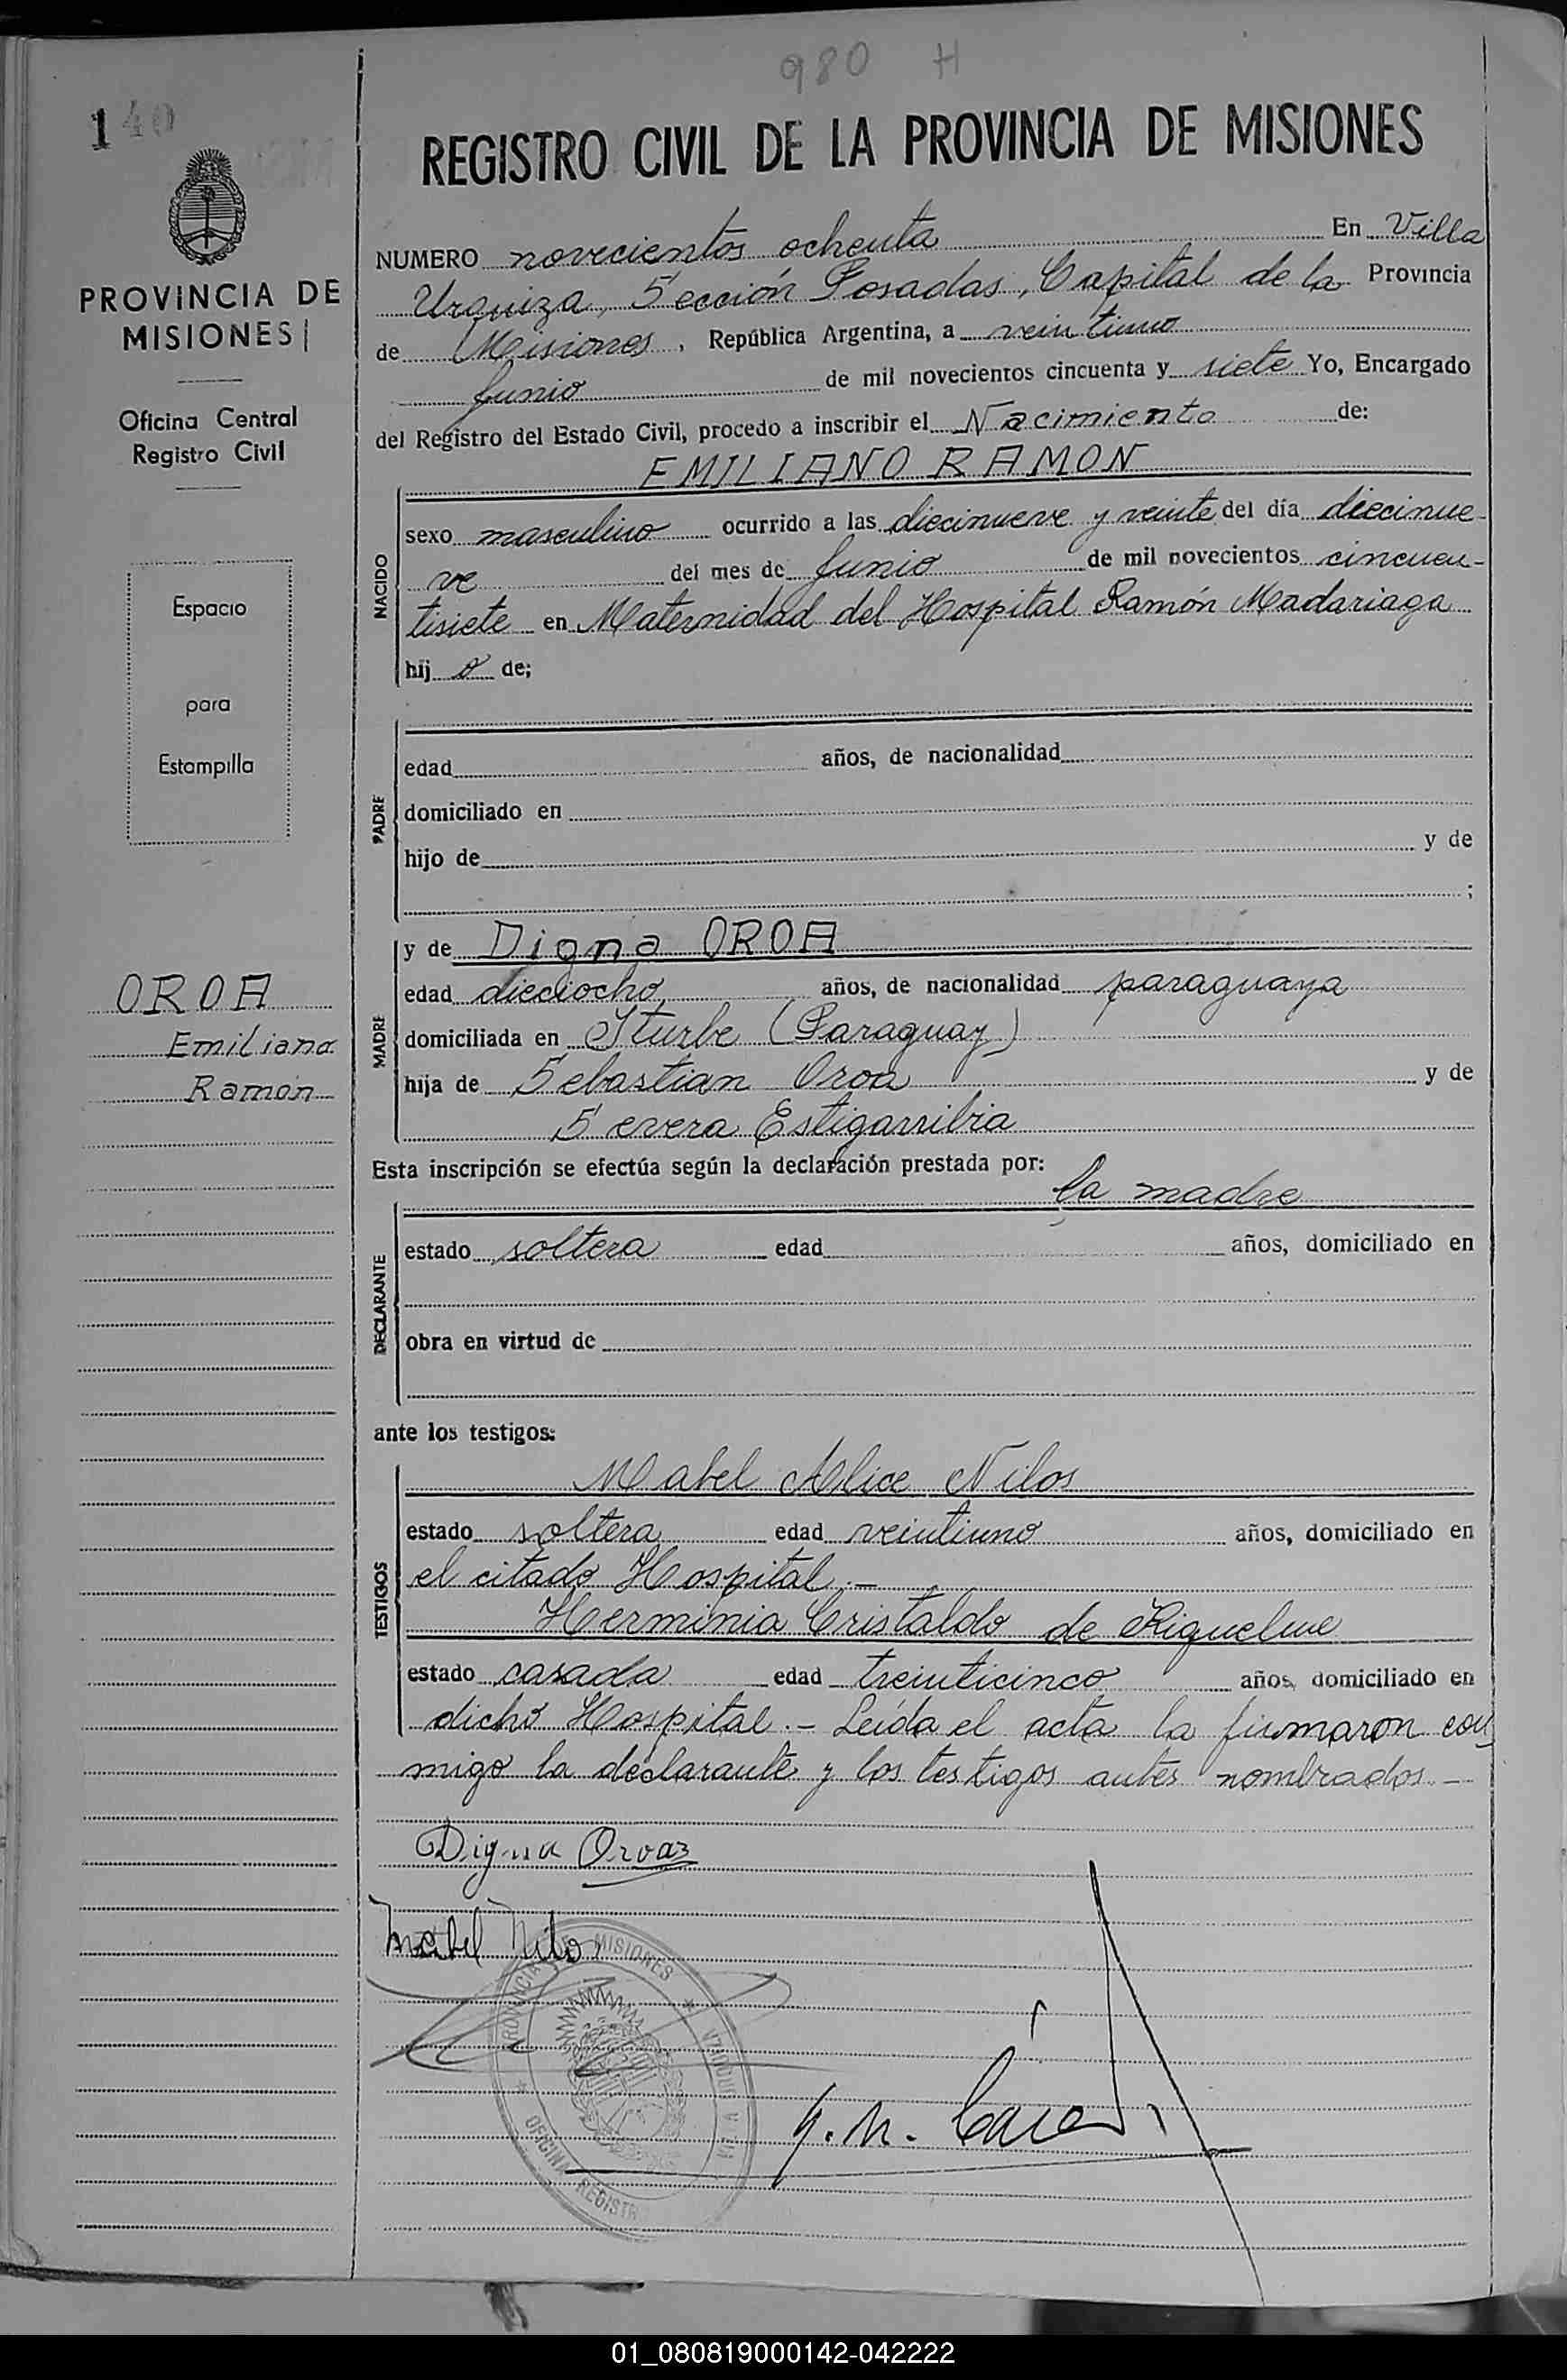 980 H
140
REGISTRO CIVIL DE LA PROVINCIA DE MISIONES
PROVINCIA DE
MISIONES
Oficina Central
Registro Civil
Espacio
para
Estampilla
OROA
Emiliano
Ramón
NUMERO novecientos ochenta En Villa
Urquiza, Sección Posadas, Capital de la Provincia
de Misiones, República Argentina, a veintiuno
Junio de mil novecientos cincuenta y siete Yo, Encargado
del Registro del Estado Civil, procedo a inscribir el Nacimiento de:
EMILIANO RAMON
NACIDO
sexo masculino ocurrido a las diecinueve y veinte del día diecinue-
ve del mes de Junio de mil novecientos cincuen-
tisiete en Maternidad del Hospital Ramón Madariaga
hij o de;
PADRE
edad años, de nacionalidad
domiciliado en
hijo de y de
;
MADRE
y de Digna OROA
edad dieciocho años, de nacionalidad paraguaya
domiciliada en Iturbe (Paraguay)
hija de Sebastian Oroa y de
Severa Estigarribia
Esta inscripción se efectúa según la declaración prestada por:
la madre
DECLARANTE
estado soltera edad años, domiciliado en
obra en virtud de
ante los testigos:
TESTIGOS
Mabel Alice Nilos
estado soltera edad veintiuno años, domiciliado en
el citado Hospital.-
Herminia Cristaldo de Riquelme
estado casada edad treinticinco años, domiciliado en
dicho Hospital.- Leída el acta la firmaron con
migo la declarante y los testigos antes nombrados.-
Digna Oroa
Mabel Nilos
PROVINCIA DE MISIONES
OFICINA REGISTRO
VILLA URQUIZA
01_080819000142-042222